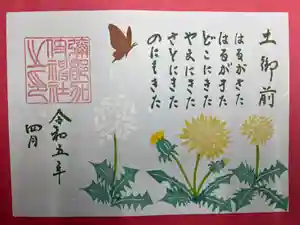 土御前
はるがきた
はるがきた
どこにきた
やまにきた
さとにきた
のにもきた
令和五年
四月